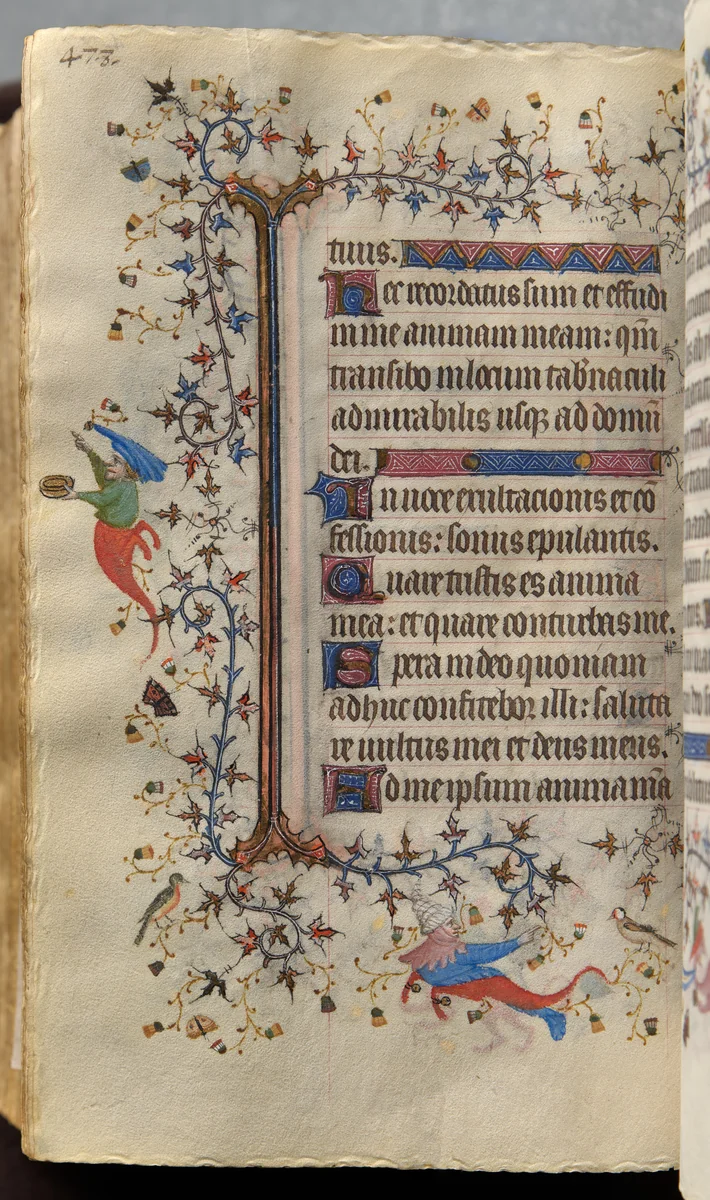 473.
tuus.
Hec recordatus sum et effudi
in me animam meam: qm̄
transibo in locum tab̓naculi
admirabilis usqꝫ ad domū
dei.
In uoce exultacionis et cō
fessionis: sonus epulantis.
Quare tristis es anima
mea: et quare conturbas me.
Spera in deo quoniam
adhuc confitebor illi: saluta
re uultus mei et deus meus.
Ad me ipsum anima m̄a